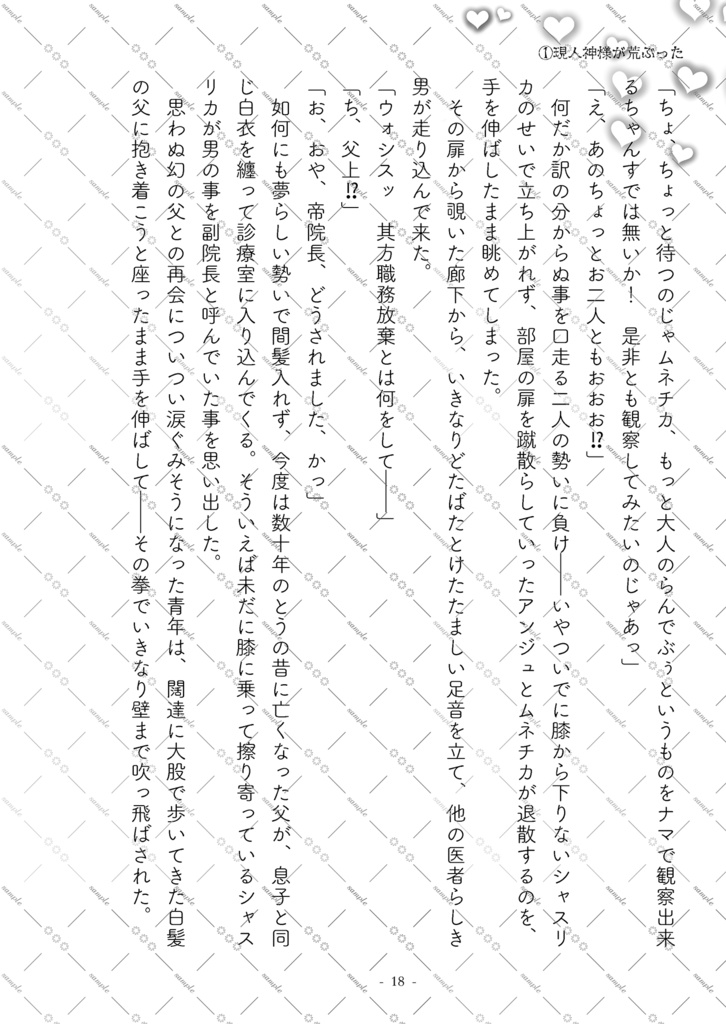 ①現人神様が荒ぶった
「ちょ、ちょっと待つのじゃムネチカ、もっと大人のらんでぶぅというものをナマで観察出来
るちゃんすでは無いか！　是非とも観察してみたいのじゃあっ」
「え、あのちょっとお二人ともおおお⁉」
　何だか訳の分からぬ事を口走る二人の勢いに負け――いやついでに膝から下りないシャスリ
カのせいで立ち上がれず、部屋の扉を蹴散らしていったアンジュとムネチカが退散するのを、
手を伸ばしたまま眺めてしまった。
　その扉から覗いた廊下から、いきなりどたばたとけたたましい足音を立て、他の医者らしき
男が走り込んで来た。
「ウォシスッ　其方職務放棄とは何をして――」
「ち、父上⁉」
「お、おや、帝院長、どうされました、かっ」
　如何にも夢らしい勢いで間髪入れず、今度は数十年のとうの昔に亡くなった父が、息子と同
じ白衣を纏って診療室に入り込んでくる。そういえば未だに膝に乗って擦り寄っているシャス
リカが男の事を副院長と呼んでいた事を思い出した。
　思わぬ幻の父との再会についつい涙ぐみそうになった青年は、闊達に大股で歩いてきた白髪
の父に抱き着こうと座ったまま手を伸ばして――その拳でいきなり壁まで吹っ飛ばされた。
- 18 -
sample